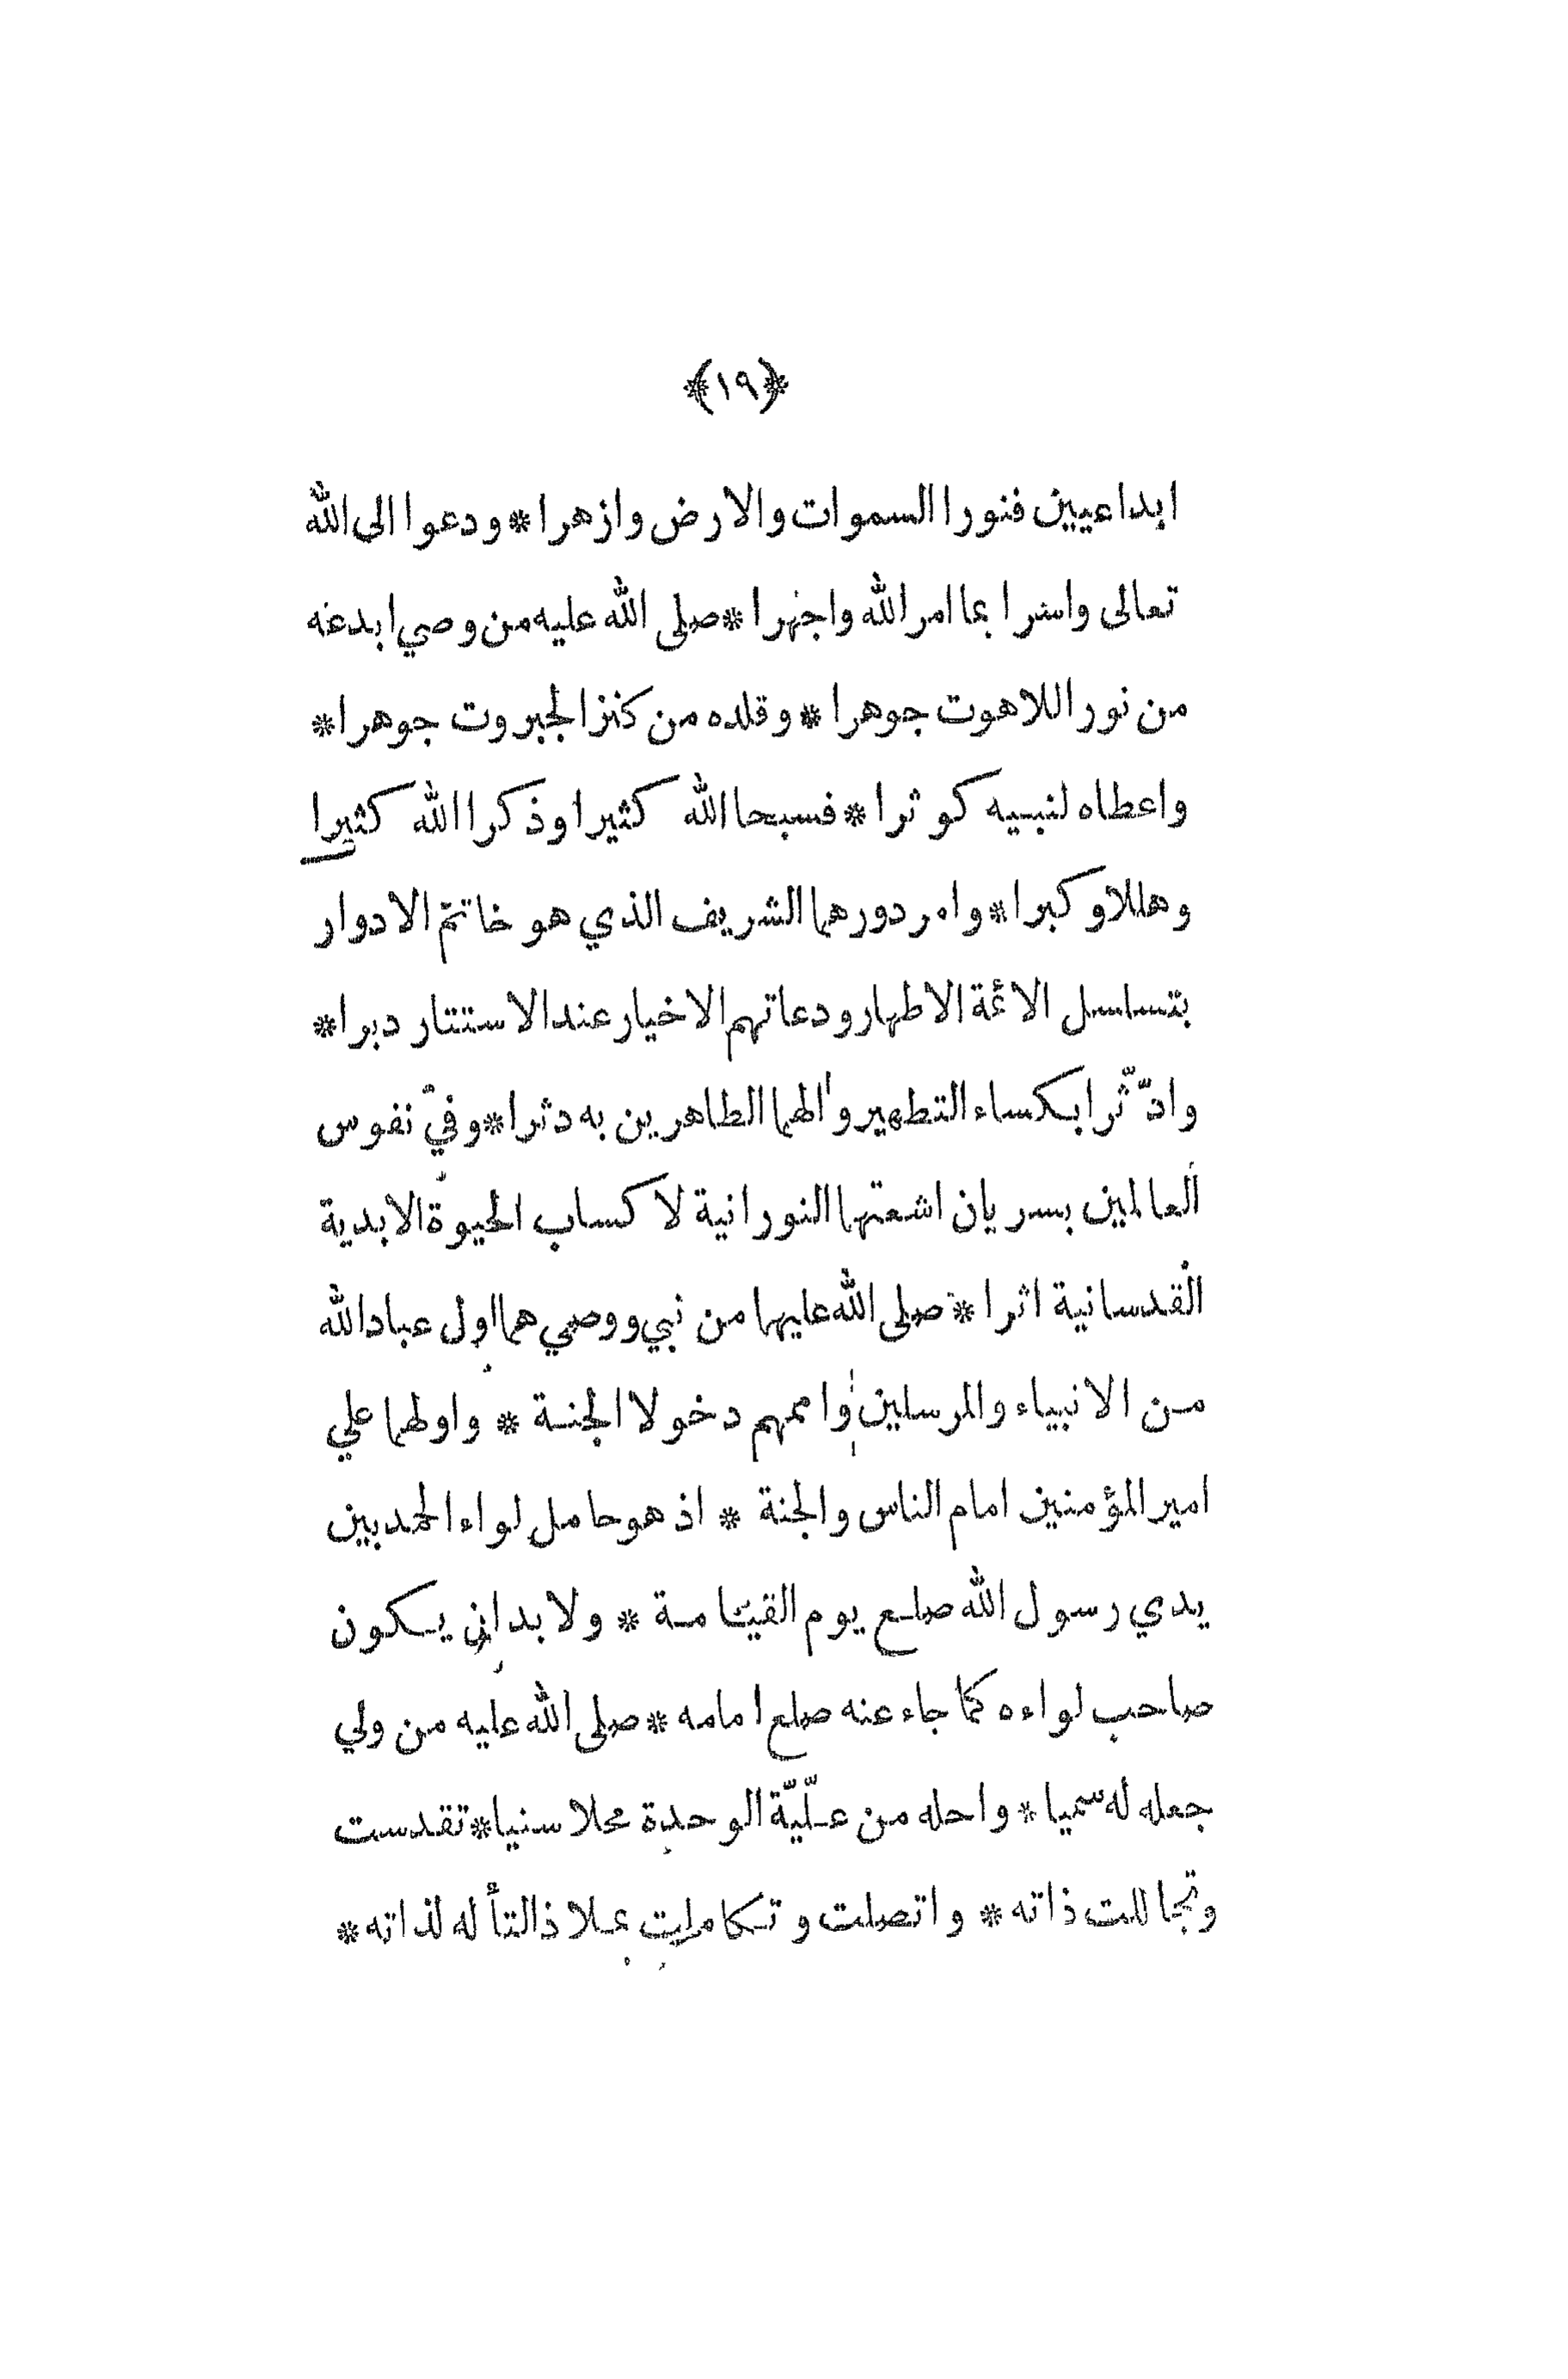 ﴿١٩﴾
ابداعيين فنورا السموات والارض وازهرا * ودعوا الى الله
تعالى واسرا بما امر الله واجهرا * صلى الله عليه من وصي ابدعه
من نور اللاهوت جوهرا * وقلده من كنز الجبروت جوهرا *
واعطاه لنبيه كوثرا * فسبحا الله كثيرا وذكرا الله كثيرا
وهللا وكبرا * وامر دورهما الشريف الذي هو خاتم الادوار
بتسلسل الائمة الاطهار ودعاتهم الاخيار عند الاستتار دبرا *
وادّثّرا بكساء التطهير وآلهما الطاهرين به دثرا * وفي نفوس
العالمين بسريان اشعتها النورانية لاكساب الحيوة الابدية
القدسانية اثرا * صلى الله عليهما من نبي ووصي هما اول عباد الله
من الانبياء والمرسلين واممهم دخولا الجنة * واولهما علي
امير المؤمنين امام الناس والجنة * اذ هو حامل لواء الحمد بين
يدي رسول الله صلع يوم القيامة * ولا بد ان يكون
صاحب لواءه كما جاء عنه صلع امامه * صلى الله عليه من ولي
جعله له سميا * واحله من علّيّة الوحدة محلا سنيا * تقدست
وتجاللت ذاته * واتصلت وتكاملت بملاذ التأله لذاته *